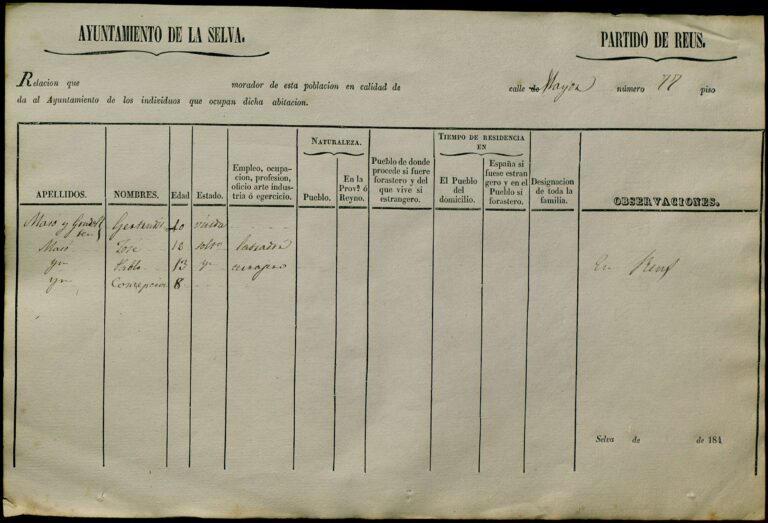 AYUNTAMIENTO DE LA SELVA.
PARTIDO DE REUS.
Relacion que morador de esta poblacion en calidad de calle de Mayor número 77 piso
da al Ayuntamiento de los individuos que ocupan dicha abitacion.
APELLIDOS.
NOMBRES.
Edad
Estado.
Empleo, ocupa-
cion, profesion,
oficio arte indus-
tria ó egercicio.
NATURALEZA.
Pueblo.
En la
Prov.ª ó
Reyno.
Pueblo de donde
procede si fuere
forastero y del
que vive si
estrangero.
TIEMPO DE RESIDENCIA
EN
El Pueblo
del
domicilio.
España si
fuese estran
gero y en el
Pueblo si
forastero.
Designacion
de toda la
familia.
OBSERVACIONES.
Maso y Gertrudis 40 viuda
Masó José 18 solt.º labrador
yn Pablo 13 yn cerragero En Reus
yn Concepcion 8
Selva de de 184